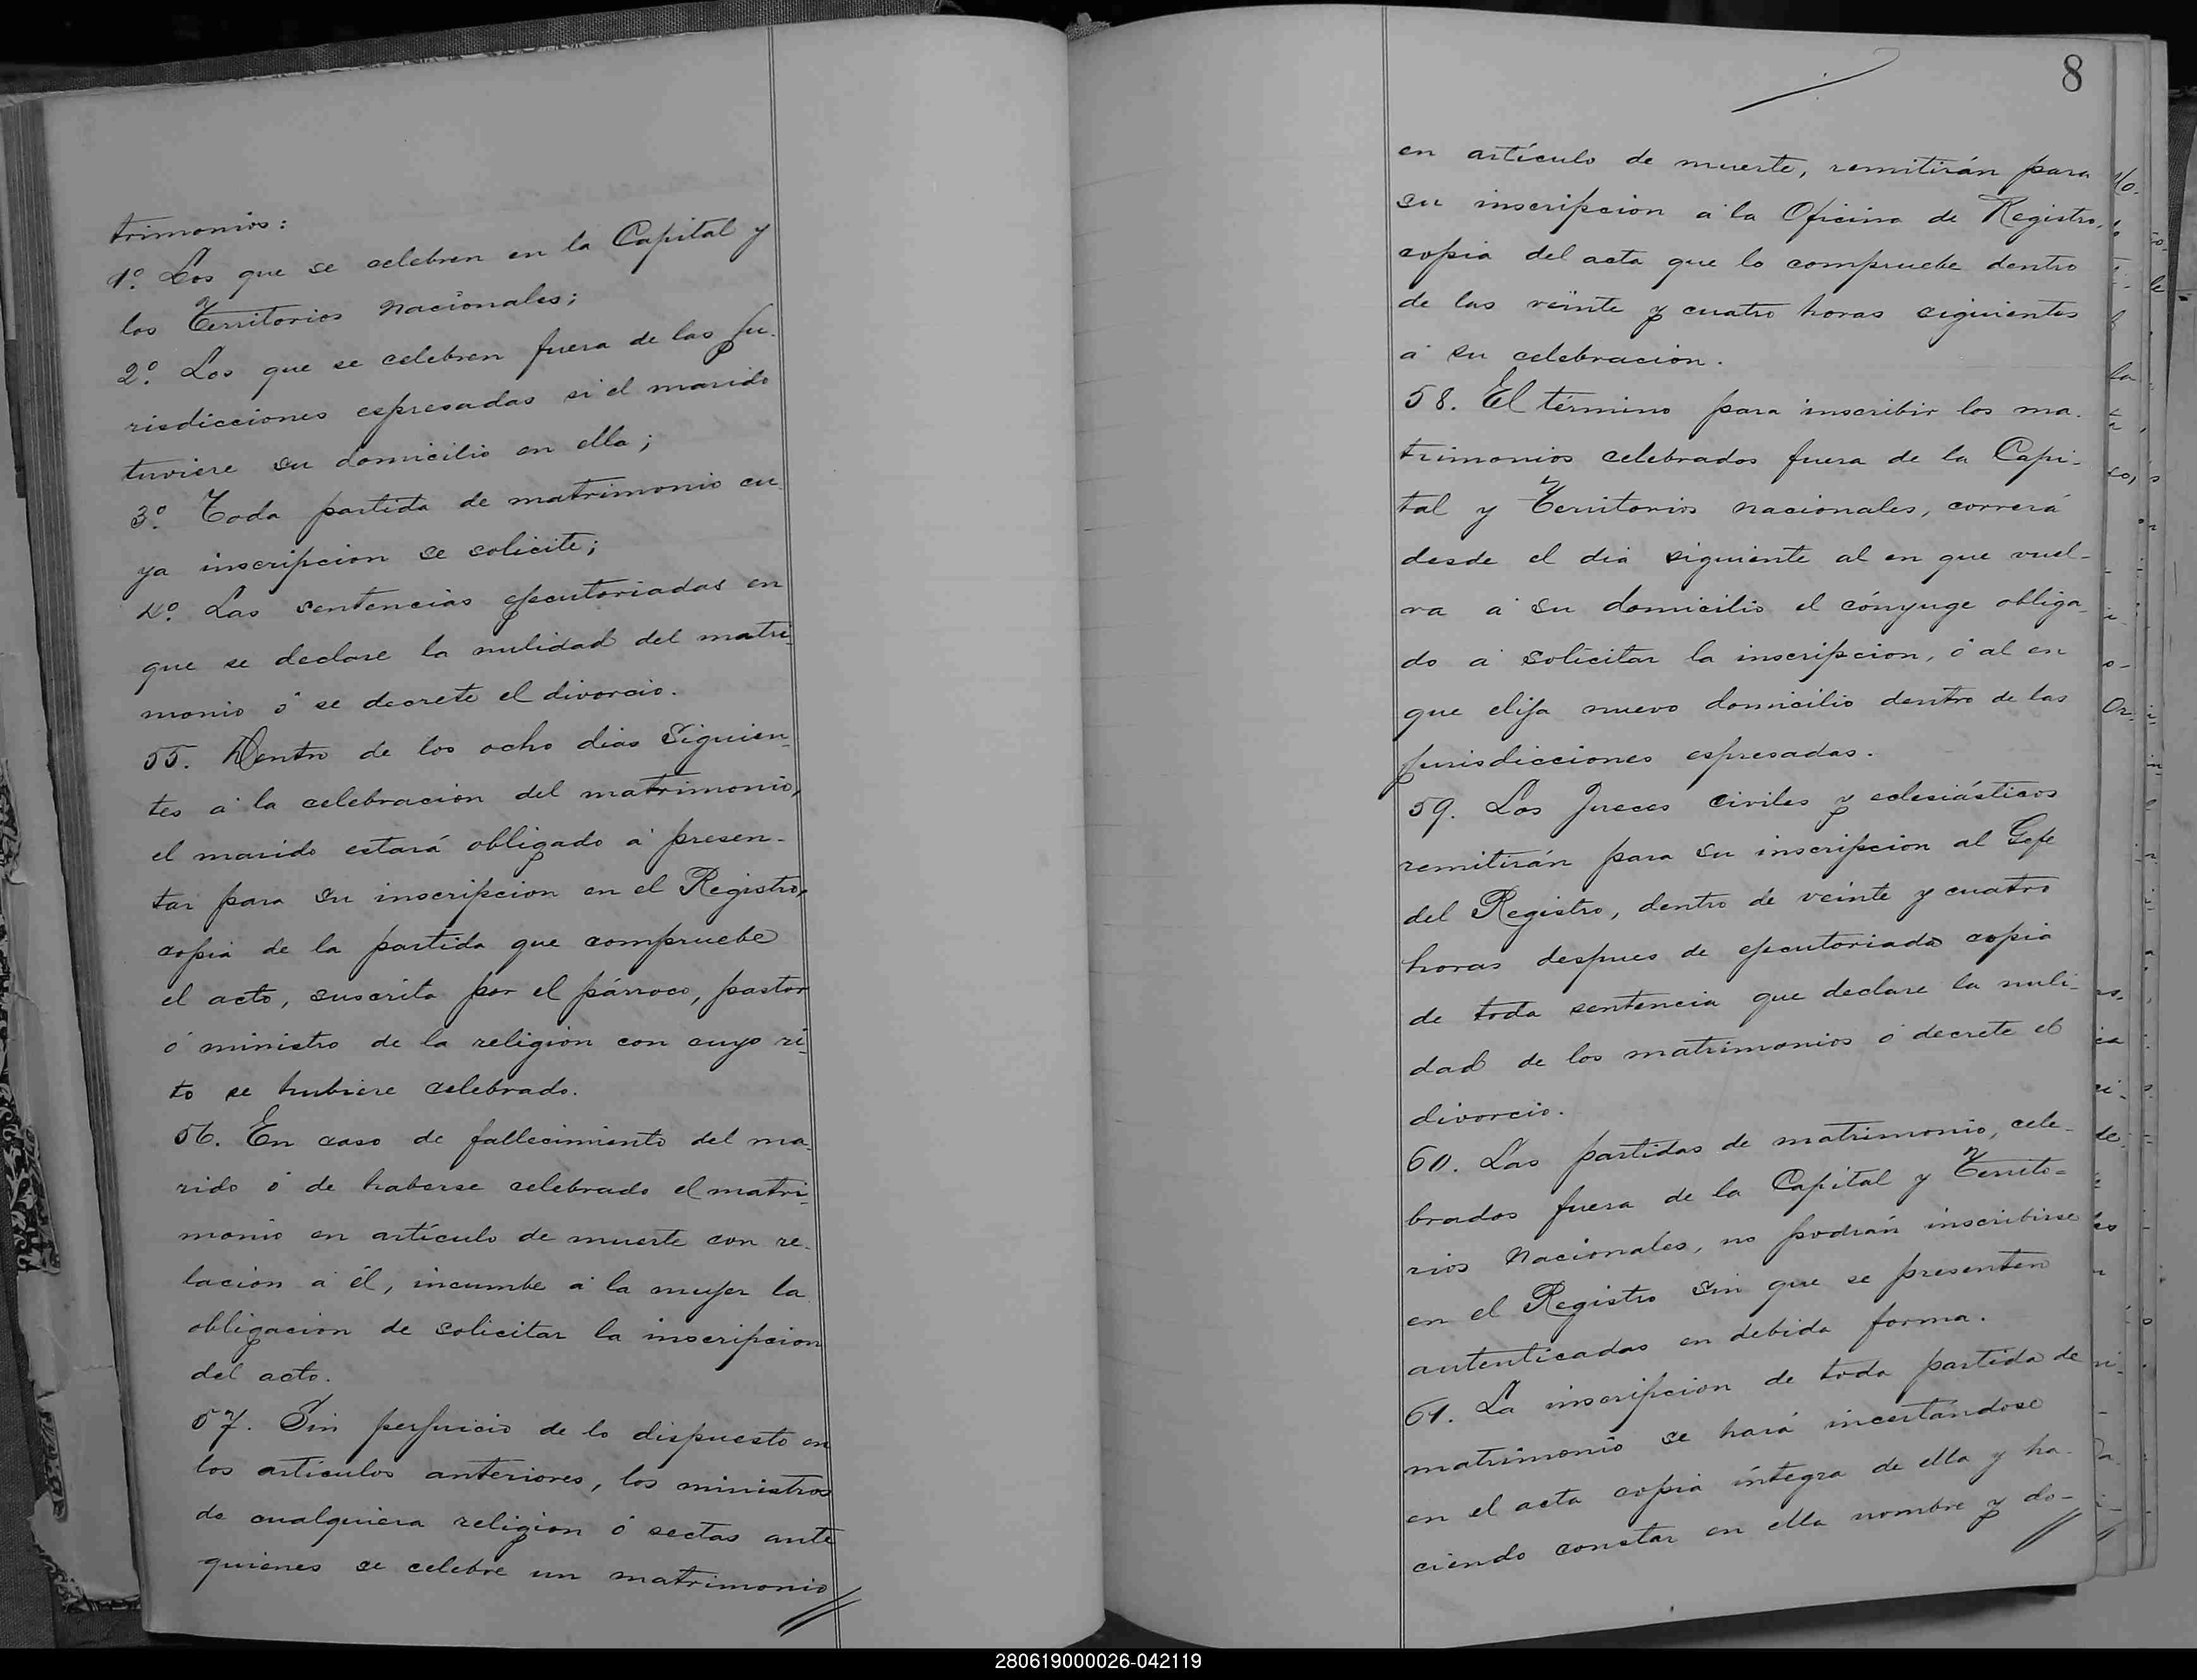 trimonios:
1º. Los que se celebren en la Capital y
los Territorios nacionales;
2º. Los que se celebren fuera de las ju-
risdicciones espresadas si el marido
tuviere su domicilio en ella;
3º. Toda partida de matrimonio cu
ya inscripcion se solicite;
4º. Las sentencias ejecutoriadas en
que se declare la nulidad del matri-
monio ó se decrete el divorcio.
55. Dentro de los ocho dias siguien-
tes á la celebracion del matrimonio,
el marido estará obligado á presen-
tar para su inscripcion en el Registro,
copia de la partida que compruebe
el acto, suscrita por el párroco, pastor
ó ministro de la religion con cuyo ri-
to se hubiere celebrado.
56. En caso de fallecimiento del ma-
rido ó de haberse celebrado el matri-
monio en artículo de muerte con re-
lacion á él, incumbe á la mujer la
obligacion de solicitar la inscripcion
del acto.
57. Sin perjuicio de lo dispuesto en
los artículos anteriores, los ministros
de cualquiera religion ó sectas ante
quienes se celebre un matrimonio
8
en artículo de muerte, remitirán para
su inscripcion á la Oficina de Registro,
copia del acta que lo compruebe dentro
de las veinte y cuatro horas siguientes
á su celebracion.
58. El término para inscribir los ma-
trimonios celebrados fuera de la Capi-
tal y Territorios nacionales, correrá
desde el dia siguiente al en que vuel-
va á su domicilio el cónyuge obliga-
do á solicitar la inscripcion, ó al en
que elija nuevo domicilio dentro de las
jurisdicciones espresadas.
59. Los Jueces civiles y eclesiásticos
remitirán para su inscripcion al Gefe
del Registro, dentro de veinte y cuatro
horas despues de ejecutoriada copia
de toda sentencia que declare la nuli-
dad de los matrimonios ó decrete el
divorcio.
60. Las partidas de matrimonio, cele-
brados fuera de la Capital y Territo-
rios Nacionales, no podrán inscribirse
en el Registro sin que se presenten
autenticadas en debida forma.
61. La inscripcion de toda partida de
matrimonio se hará incertándose
en el acta copia íntegra de ella y ha-
ciendo constar en ella nombre y do-
280619000026-042119